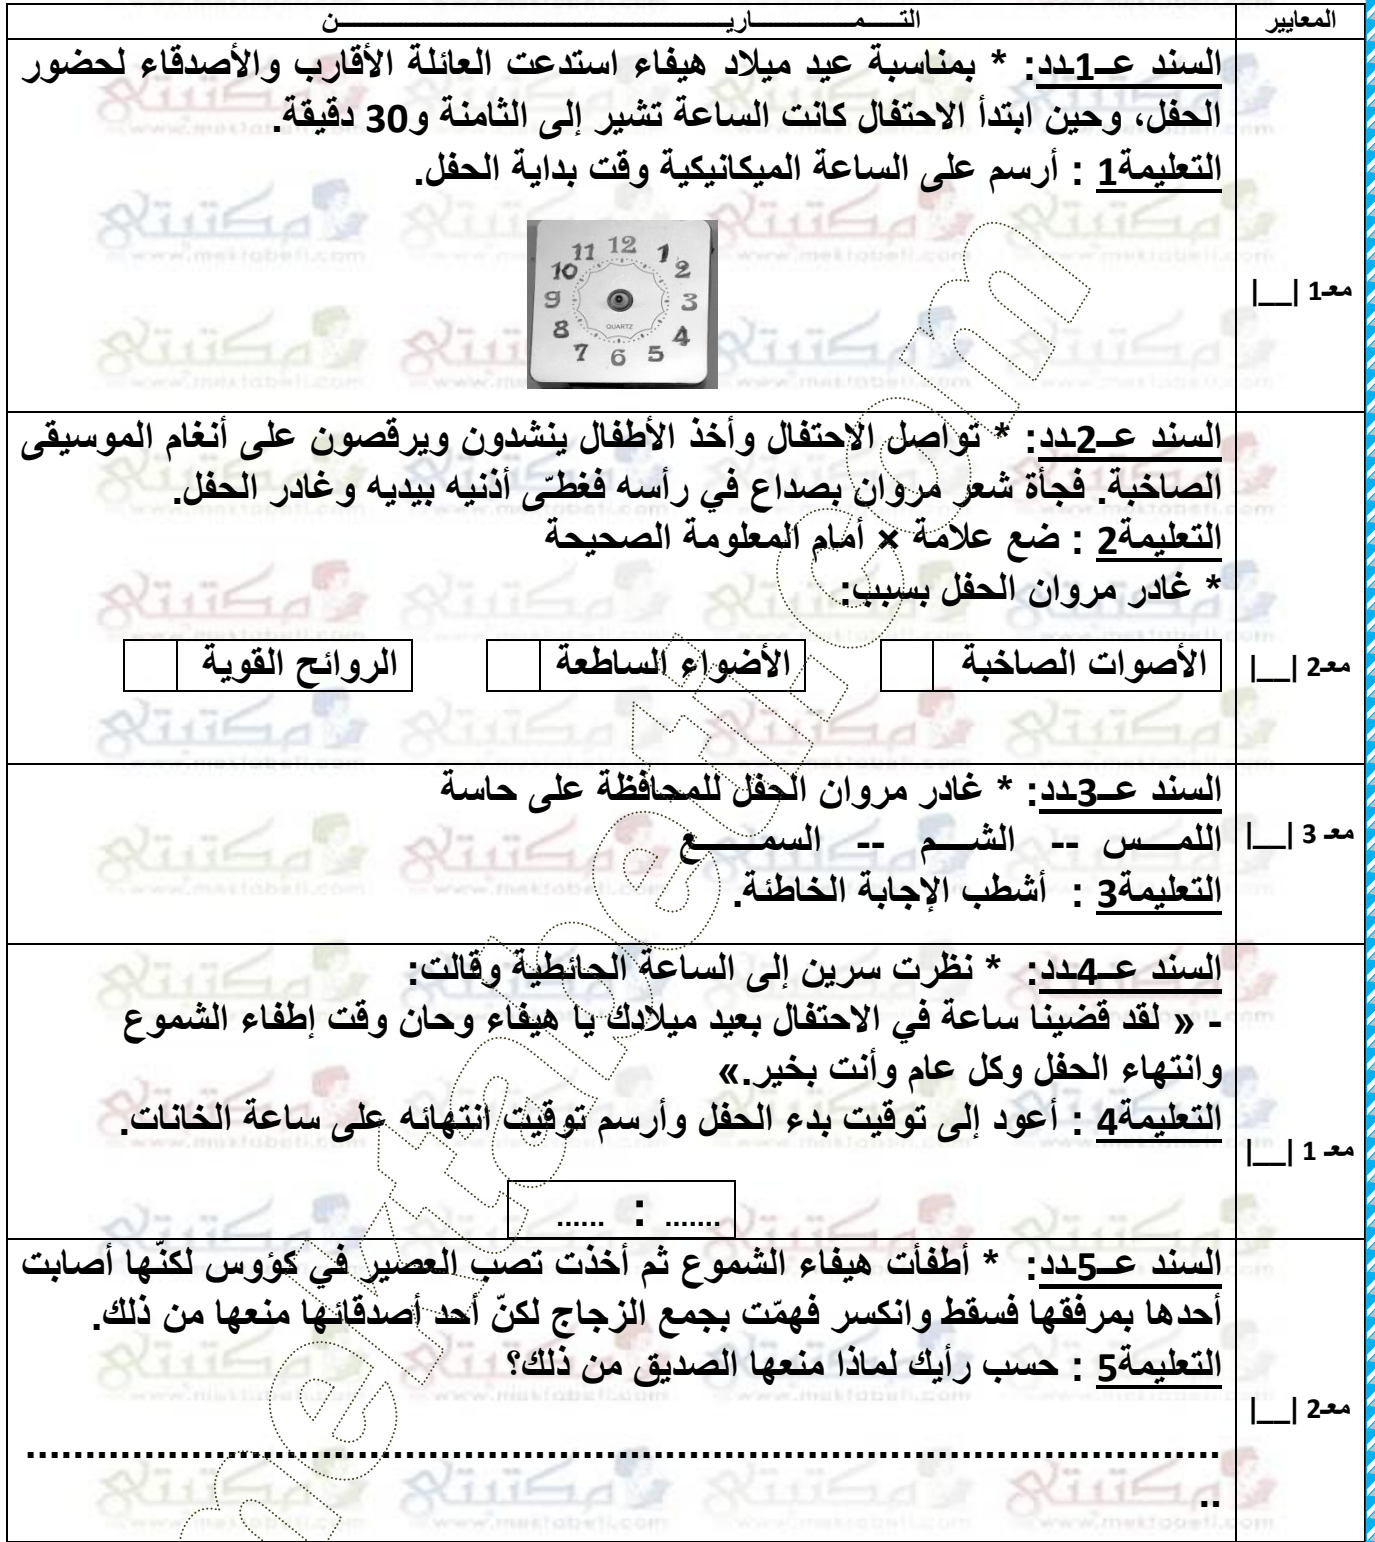 المعايير
التـــمـــــــــاريـــــــــــــــــــــــــن
السند عــ1ـدد: * بمناسبة عيد ميلاد هيفاء استدعت العائلة الأقارب والأصدقاء لحضور
الحفل، وحين ابتدأ الاحتفال كانت الساعة تشير إلى الثامنة و30 دقيقة.
التعليمة1 : أرسم على الساعة الميكانيكية وقت بداية الحفل.
11 12 1
10 2
9 3
QUARTZ
8 4
7 6 5
معـ1 |__|
السند عــ2ـدد: * تواصل الاحتفال وأخذ الأطفال ينشدون ويرقصون على أنغام الموسيقى
الصاخبة. فجأة شعر مروان بصداع في رأسه فغطّى أذنيه بيديه وغادر الحفل.
التعليمة2 : ضع علامة × أمام المعلومة الصحيحة
* غادر مروان الحفل بسبب:
الأصوات الصاخبة
الأضواء الساطعة
الروائح القوية
معـ2 |__|
السند عــ3ـدد: * غادر مروان الحفل للمحافظة على حاسة
اللمــــس -- الشــــم -- السمـــــــع
التعليمة3 : أشطب الإجابة الخاطئة.
معـ 3 |__|
السند عــ4ـدد: * نظرت سرين إلى الساعة الحائطية وقالت:
- « لقد قضينا ساعة في الاحتفال بعيد ميلادك يا هيفاء وحان وقت إطفاء الشموع
وانتهاء الحفل وكل عام وأنت بخير.»
التعليمة4 : أعود إلى توقيت بدء الحفل وأرسم توقيت انتهائه على ساعة الخانات.
....... : ......
معـ 1 |__|
السند عــ5ـدد: * أطفأت هيفاء الشموع ثم أخذت تصب العصير في كؤوس لكنّها أصابت
أحدها بمرفقها فسقط وانكسر فهمّت بجمع الزجاج لكنّ أحد أصدقائها منعها من ذلك.
التعليمة5 : حسب رأيك لماذا منعها الصديق من ذلك؟
معـ2 |__|
.....................................................................................................
..
مكتبتي
www.mektabeti.com
mektabeti.com